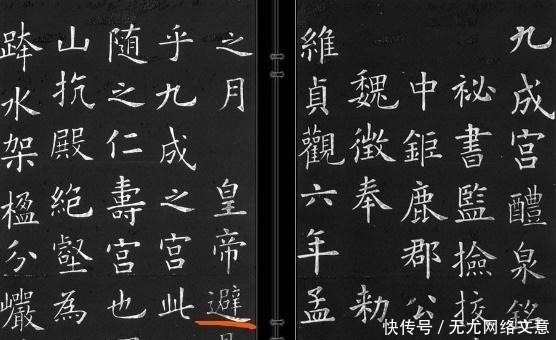 九成宮醴泉銘
祕書監撿挍
中鉅鹿郡公
魏徵奉 勑
維貞觀六年孟
之月 皇帝避
乎九成之宮此
随之仁壽宮也
山抗殿絶壑為
跨水架楹分巖
快传号／无尤网络文意